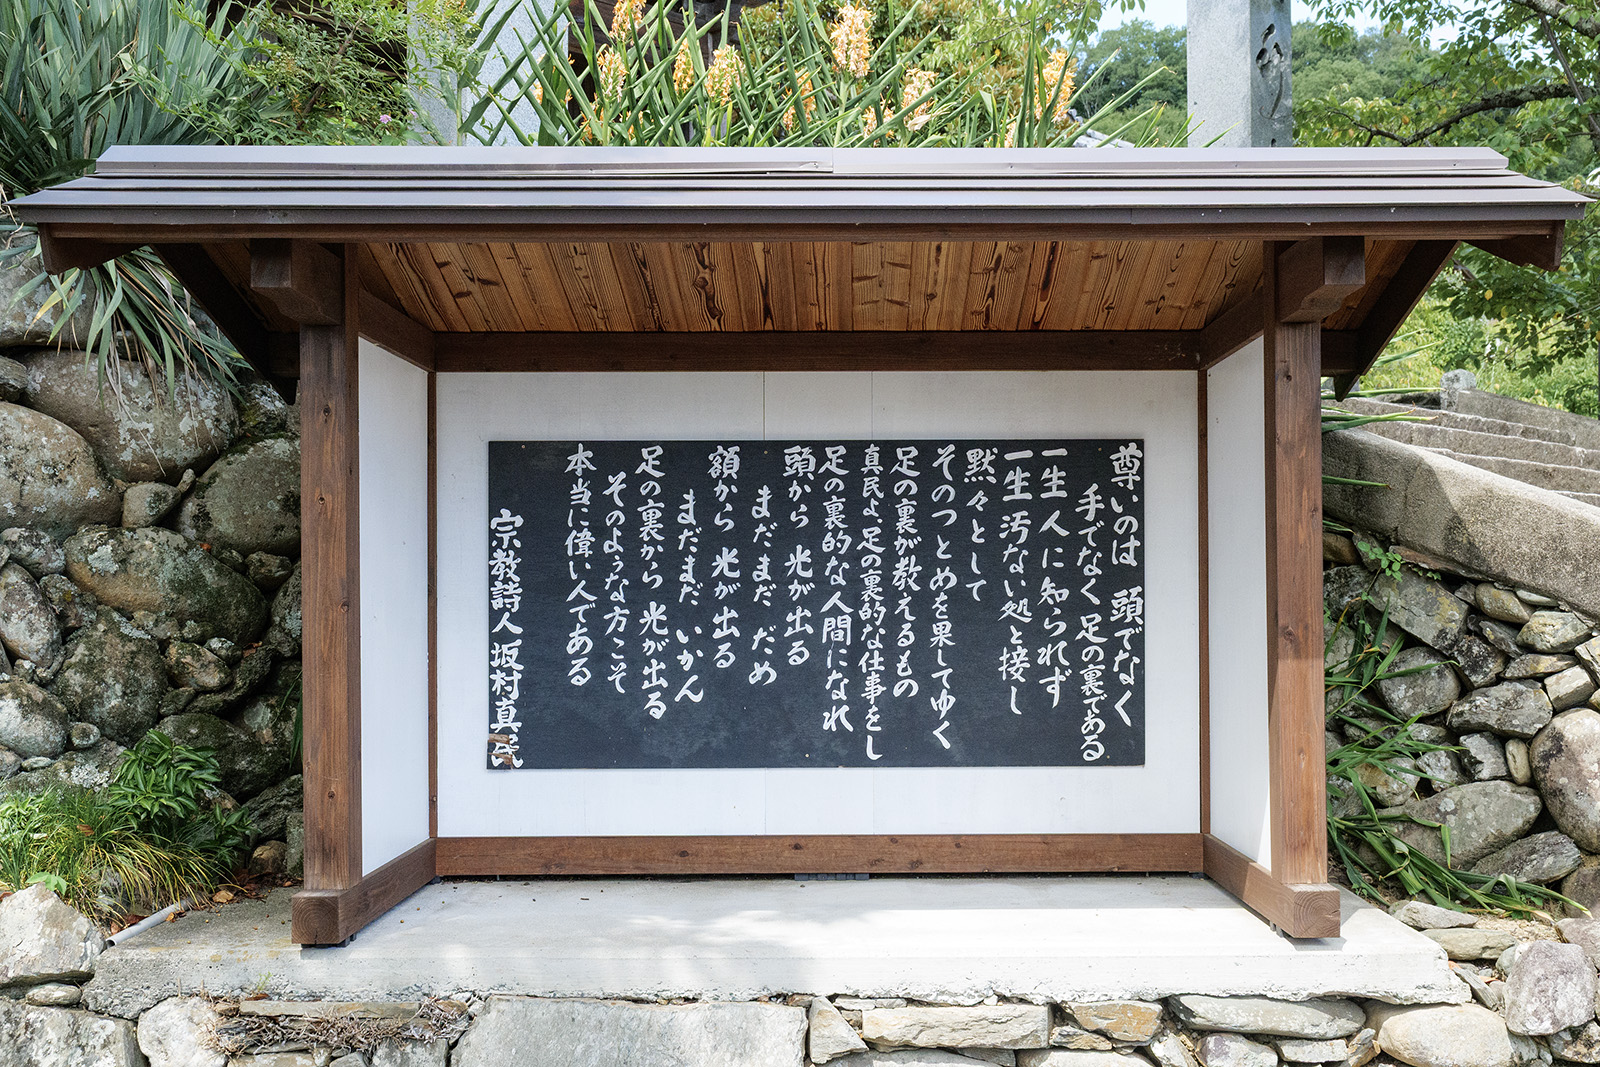 尊いのは 頭でなく
手でなく 足の裏である
一生人に知られず
一生汚ない処と接し
黙々として
そのつとめを果してゆく
足の裏が教えるもの
真民よ、足の裏的な仕事をし
足の裏的な人間になれ
頭から 光が出る
まだまだ だめ
額から 光が出る
まだまだ いかん
足の裏から 光が出る
そのような方こそ
本当に偉い人である
宗教詩人 坂村真民